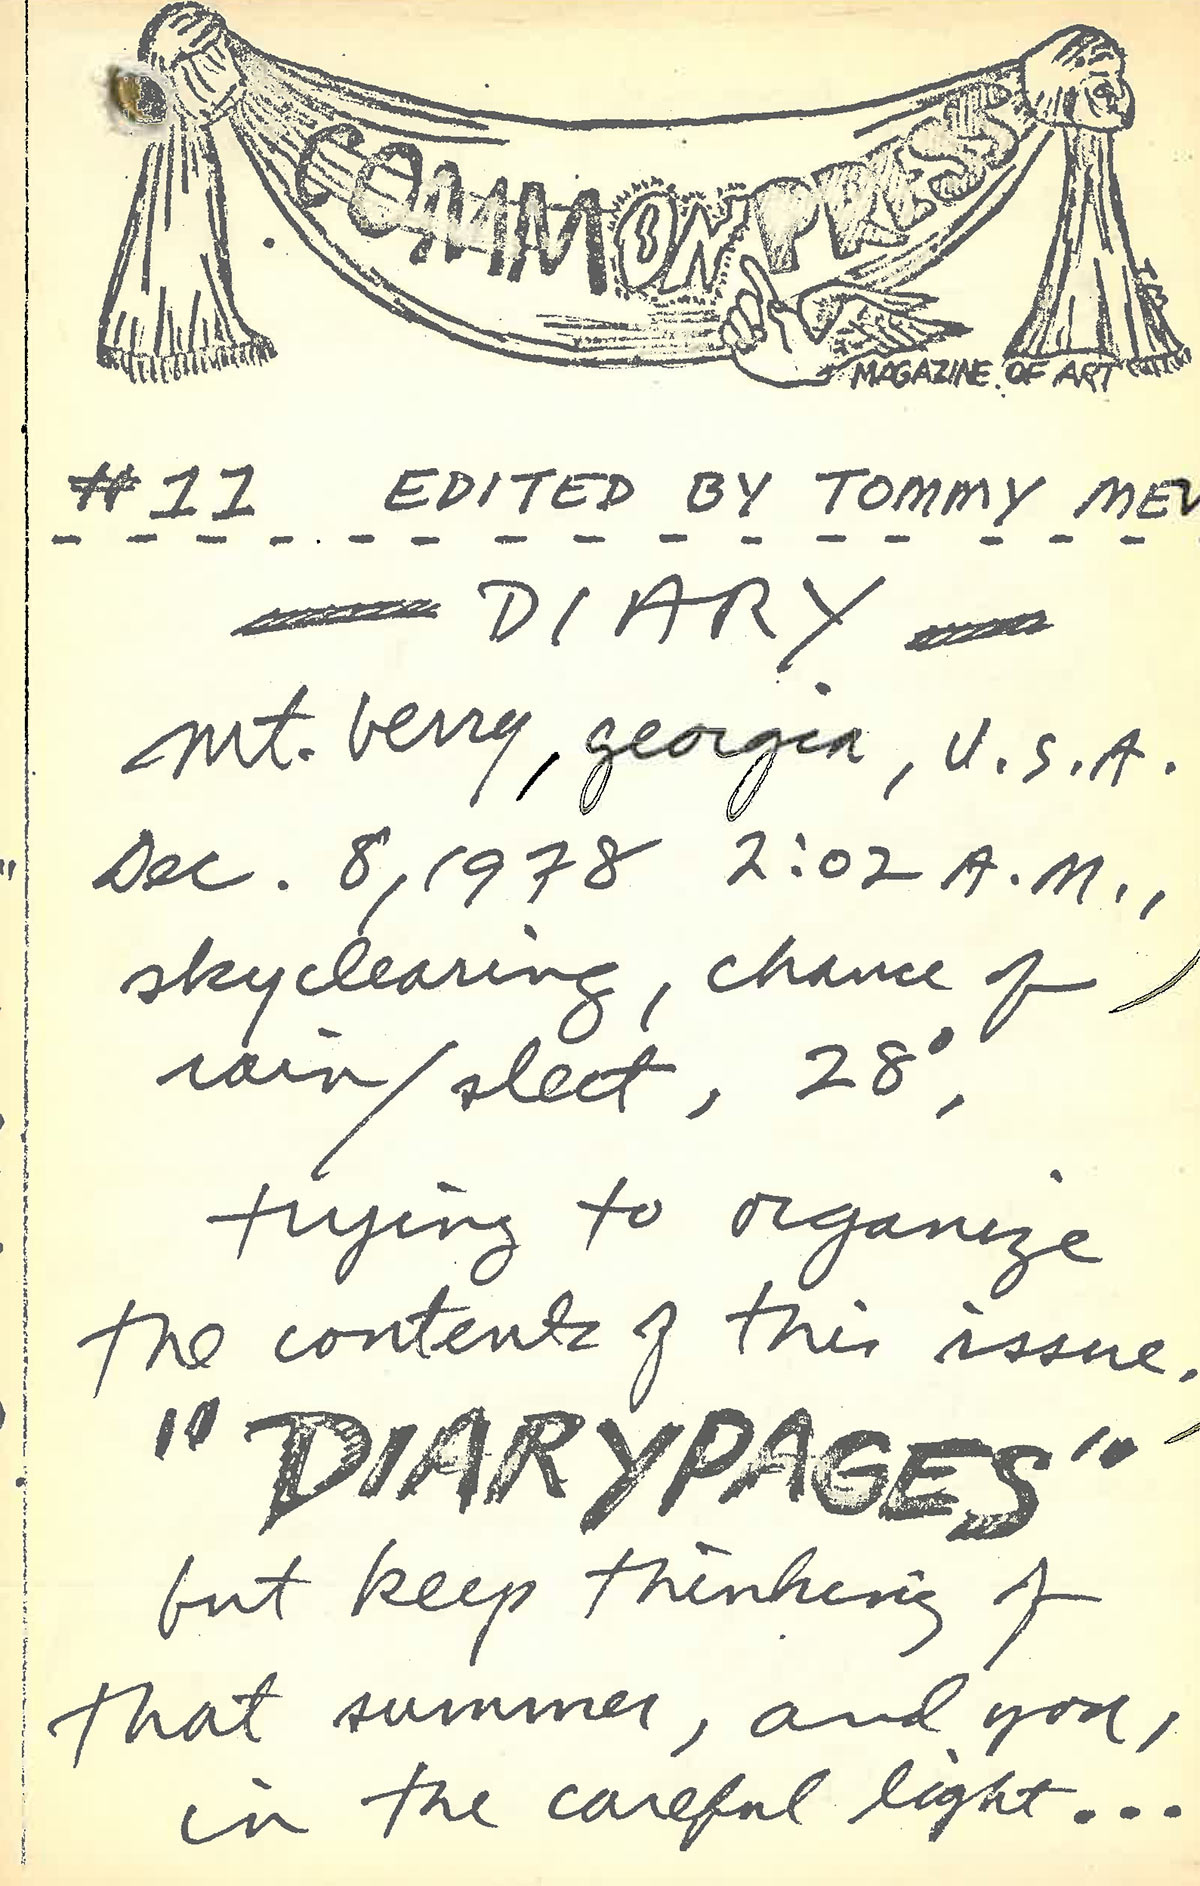 COMMONPRESS
MAGAZINE OF ART
#11 EDITED BY TOMMY MEW
DIARY
mt. berry, georgia, U.S.A.
Dec. 8, 1978 2:02 A.M.,
sky clearing, chance of
rain/sleet, 28°,
trying to organize
the contents of this issue.
"DIARYPAGES"
but keep thinking of
that summer, and you,
in the careful light...